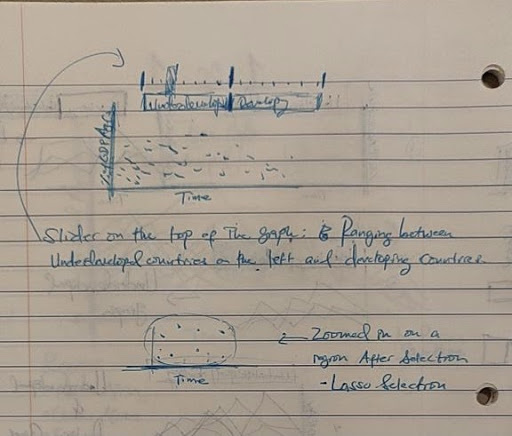 Underdevelop Develop
Time
Slider on the top of The graph: Ranging between
Underdeveloped countries on the left and developing countries
Zoomed in on a
region After Selection
- Lasso Selection
Time